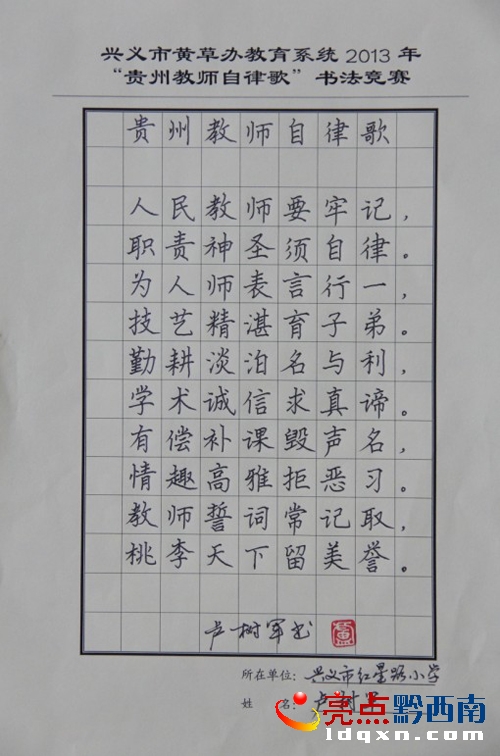 兴义市黄草办教育系统2013年
“贵州教师自律歌”书法竞赛
贵州教师自律歌
人民教师要牢记，
职责神圣须自律。
为人师表言行一，
技艺精湛育子弟。
勤耕淡泊名与利，
学术诚信求真谛。
有偿补课毁声名，
情趣高雅拒恶习。
教师誓词常记取，
桃李天下留美誉。
卢树军书
所在单位：兴义市红星路小学
姓 名：卢树军
亮点黔西南
www.ldqxn.com